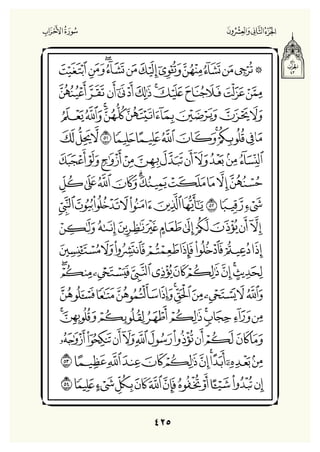 الجُزْءُ الثَّانِي وَالعِشْرُونَ سُورَةُ الأَحْزَابِ
۞ تُرْجِي مَن تَشَآءُ مِنْهُنَّ وَتُـْٔوِىٓ إِلَيْكَ مَن تَشَآءُۖ وَمَنِ ٱبْتَغَيْتَ
مِمَّنْ عَزَلْتَ فَلَا جُنَاحَ عَلَيْكَۚ ذَٰلِكَ أَدْنَىٰٓ أَن تَقَرَّ أَعْيُنُهُنَّ
وَلَا يَحْزَنَّ وَيَرْضَيْنَ بِمَآ ءَاتَيْتَهُنَّ كُلُّهُنَّۚ وَٱللَّهُ يَعْلَمُ
مَا فِى قُلُوبِكُمْۚ وَكَانَ ٱللَّهُ عَلِيمًا حَلِيمًا ٥١ لَّا يَحِلُّ لَكَ
ٱلنِّسَآءُ مِنۢ بَعْدُ وَلَآ أَن تَبَدَّلَ بِهِنَّ مِنْ أَزْوَٰجٍ وَلَوْ أَعْجَبَكَ
حُسْنُهُنَّ إِلَّا مَا مَلَكَتْ يَمِينُكَۗ وَكَانَ ٱللَّهُ عَلَىٰ كُلِّ
شَىْءٍ رَّقِيبًا ٥٢ يَٰٓأَيُّهَا ٱلَّذِينَ ءَامَنُوا۟ لَا تَدْخُلُوا۟ بُيُوتَ ٱلنَّبِىِّ
إِلَّآ أَن يُؤْذَنَ لَكُمْ إِلَىٰ طَعَامٍ غَيْرَ نَٰظِرِينَ إِنَىٰهُ وَلَٰكِنْ
إِذَا دُعِيتُمْ فَٱدْخُلُوا۟ فَإِذَا طَعِمْتُمْ فَٱنتَشِرُوا۟ وَلَا مُسْتَـْٔنِسِينَ
لِحَدِيثٍۚ إِنَّ ذَٰلِكُمْ كَانَ يُؤْذِى ٱلنَّبِىَّ فَيَسْتَحْىِۦ مِنكُمْۖ
وَٱللَّهُ لَا يَسْتَحْىِۦ مِنَ ٱلْحَقِّۚ وَإِذَا سَأَلْتُمُوهُنَّ مَتَٰعًا فَسْـَٔلُوهُنَّ
مِن وَرَآءِ حِجَابٍۚ ذَٰلِكُمْ أَطْهَرُ لِقُلُوبِكُمْ وَقُلُوبِهِنَّۚ
وَمَا كَانَ لَكُمْ أَن تُؤْذُوا۟ رَسُولَ ٱللَّهِ وَلَآ أَن تَنكِحُوٓا۟ أَزْوَٰجَهُۥ
مِنۢ بَعْدِهِۦٓ أَبَدًاۚ إِنَّ ذَٰلِكُمْ كَانَ عِندَ ٱللَّهِ عَظِيمًا ٥٣
إِن تُبْدُوا۟ شَيْـًٔا أَوْ تُخْفُوهُ فَإِنَّ ٱللَّهَ كَانَ بِكُلِّ شَىْءٍ عَلِيمًا ٥٤
٤٢٥